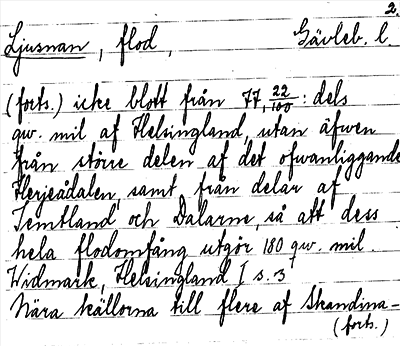 2.
Ljusnan, flod, Gävleb. l.
(forts.) icke blott från 77,22/100: dels
qw. mil af Helsingland, utan äfwen
från större delen af det ofwanliggande
Herjeådalen samt från delar af
Jemtland och Dalarne, så att dess
hela flodomfång utgör 180 qw. mil.
Widmark, Helsingland I s. 3
Nära källorna till flere af Skandina-
(forts.)